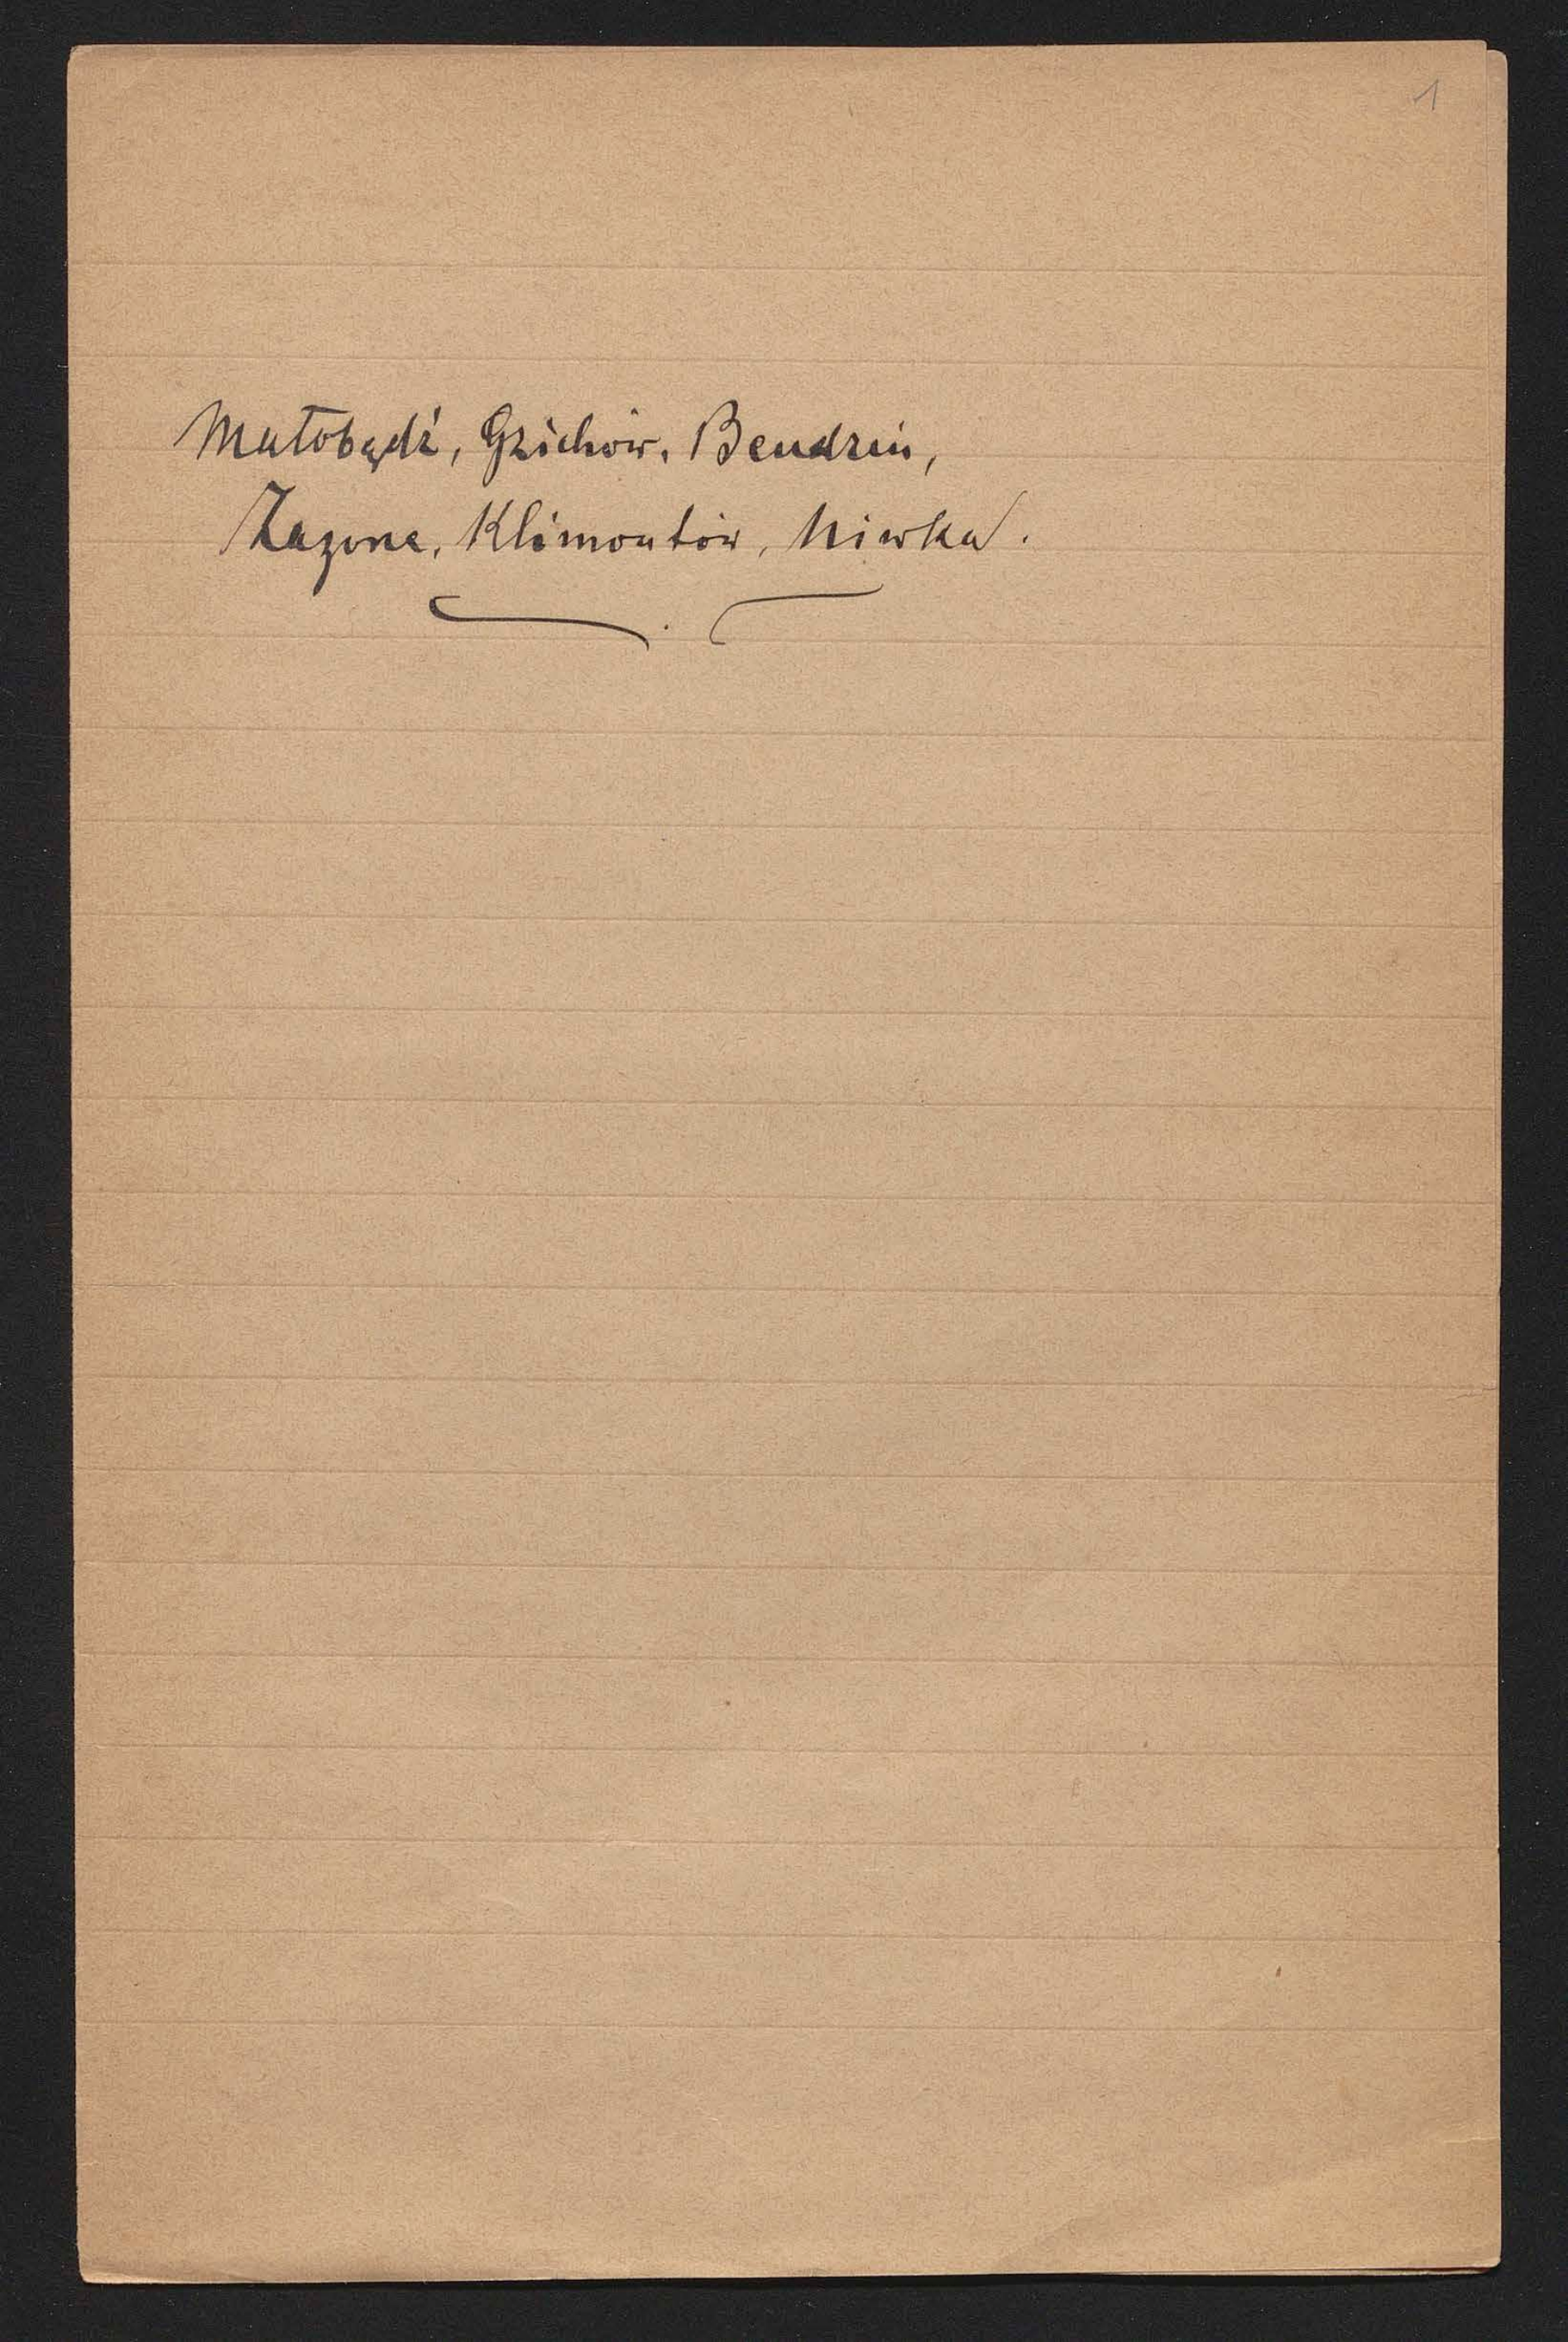 1
Małobądź, Gzichów, Bendzin,
Zagórze, Klimontów, Niwka.